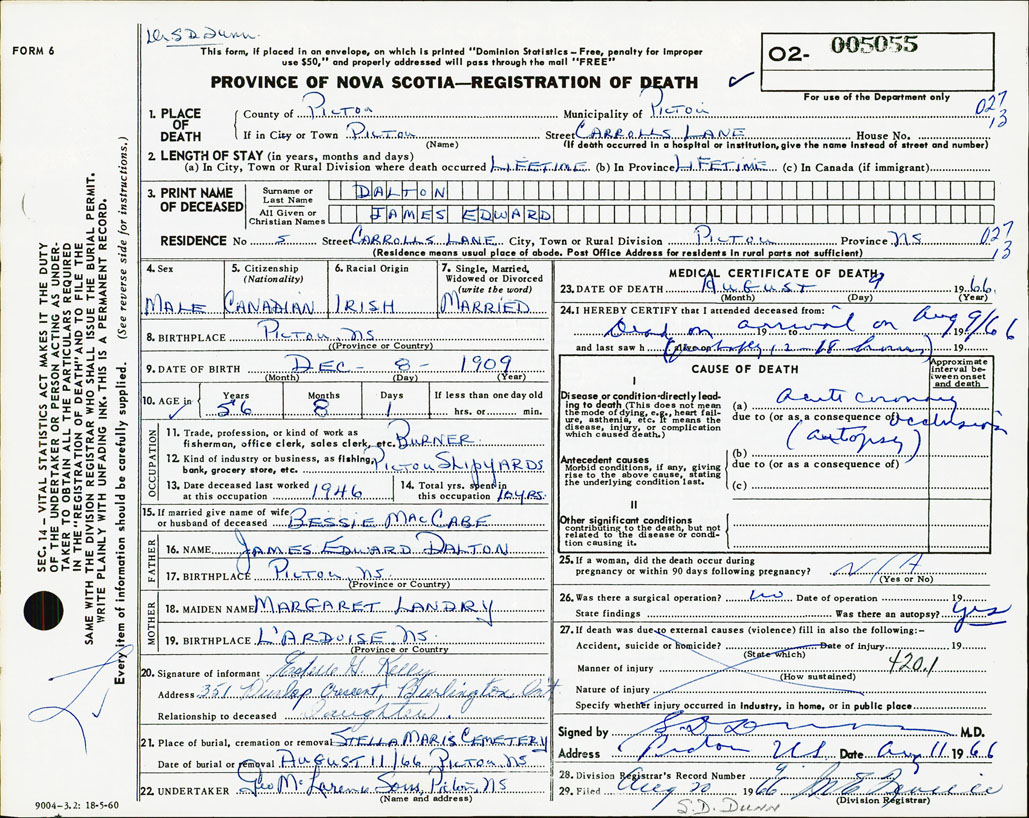 Dr S D Dunn.
FORM 6
This form, if placed in an envelope, on which is printed "Dominion Statistics – Free, penalty for improper
use $50," and properly addressed will pass through the mail "FREE"
PROVINCE OF NOVA SCOTIA—REGISTRATION OF DEATH
O2- 005055
For use of the Department only
027
13
1. PLACE OF DEATH
County of Pictou Municipality of Pictou
If in City or Town Pictou Street CARROLLS LANE House No.
(Name) (If death occurred in a hospital or institution, give the name instead of street and number)
2. LENGTH OF STAY (in years, months and days)
(a) In City, Town or Rural Division where death occurred LIFETIME (b) In Province LIFETIME (c) In Canada (if immigrant)
3. PRINT NAME OF DECEASED
Surname or Last Name DALTON
All Given or Christian Names JAMES EDWARD
RESIDENCE No 5 Street CARROLLS LANE City, Town or Rural Division PICTOU Province NS
027
13
(Residence means usual place of abode. Post Office Address for residents in rural parts not sufficient)
4. Sex
MALE
5. Citizenship
(Nationality)
CANADIAN
6. Racial Origin
IRISH
7. Single, Married,
Widowed or Divorced
(write the word)
MARRIED
8. BIRTHPLACE PICTOU, NS.
(Province or Country)
9. DATE OF BIRTH DEC - 8 - 1909
(Month) (Day) (Year)
10. AGE in Years Months Days If less than one day old
56 8 1 hrs. or min.
OCCUPATION
11. Trade, profession, or kind of work as
fisherman, office clerk, sales clerk, etc. BURNER.
12. Kind of industry or business, as fishing,
bank, grocery store, etc. PICTOU SHIPYARDS
13. Date deceased last worked
at this occupation 1946
14. Total yrs. spent in
this occupation 10 YRS.
15. If married give name of wife
or husband of deceased BESSIE MACCABE
FATHER
16. NAME JAMES EDWARD DALTON
17. BIRTHPLACE PICTOU, NS.
(Province or Country)
MOTHER
18. MAIDEN NAME MARGARET LANDRY
19. BIRTHPLACE L'ARDOISE NS.
(Province or Country)
20. Signature of informant H. Kelly
Address 351 Dunlop Crescent, Burlington, Ont
Relationship to deceased Daughter.
21. Place of burial, cremation or removal STELLA MARIS CEMETERY
Date of burial or removal AUGUST 11/66 PICTOU NS
22. UNDERTAKER Geo McLaren & Sons, Pictou, NS
(Name and address)
MEDICAL CERTIFICATE OF DEATH
23. DATE OF DEATH AUGUST 9 1966
(Month) (Day) (Year)
24. I HEREBY CERTIFY that I attended deceased from:
Dead on arrival on Aug 9/66
19 19
and last saw h alive on 19
(Probably 12-18 hours)
CAUSE OF DEATH
Approximate
interval be-
tween onset
and death
I
Disease or condition directly lead-
ing to death (This does not mean
the mode of dying, e.g., heart fail-
ure, asthenia, etc. It means the
disease, injury, or complication
which caused death.)
(a) acute coronary
due to (or as a consequence of) occlusion
(autopsy)
Antecedent causes
Morbid conditions, if any, giving
rise to the above cause, stating
the underlying condition last.
(b)
due to (or as a consequence of)
(c)
II
Other significant conditions
contributing to the death, but not
related to the disease or condi-
tion causing it.
25. If a woman, did the death occur during
pregnancy or within 90 days following pregnancy? N/A
(Yes or No)
26. Was there a surgical operation? no Date of operation 19
State findings Was there an autopsy? yes
27. If death was due to external causes (violence) fill in also the following:–
Accident, suicide or homicide? Date of injury 19
(State which)
Manner of injury 420.1
(How sustained)
Nature of injury
Specify whether injury occurred in industry, in home, or in public place
Signed by S D Dunn M.D.
Address Pictou N.S. Date Aug 11 1966
28. Division Registrar's Record Number
29. Filed Aug 20 1966
(Division Registrar)
S.D. DUNN
SEC. 14 – VITAL STATISTICS ACT MAKES IT THE DUTY
OF THE UNDERTAKER OR PERSON ACTING AS UNDER-
TAKER TO OBTAIN ALL THE PARTICULARS REQUIRED
IN THE "REGISTRATION OF DEATH" AND TO FILE THE
SAME WITH THE DIVISION REGISTRAR WHO SHALL ISSUE THE BURIAL PERMIT.
WRITE PLAINLY WITH UNFADING INK. THIS IS A PERMANENT RECORD.
Every item of information should be carefully supplied. (See reverse side for instructions.)
9004-3.2: 18-5-60